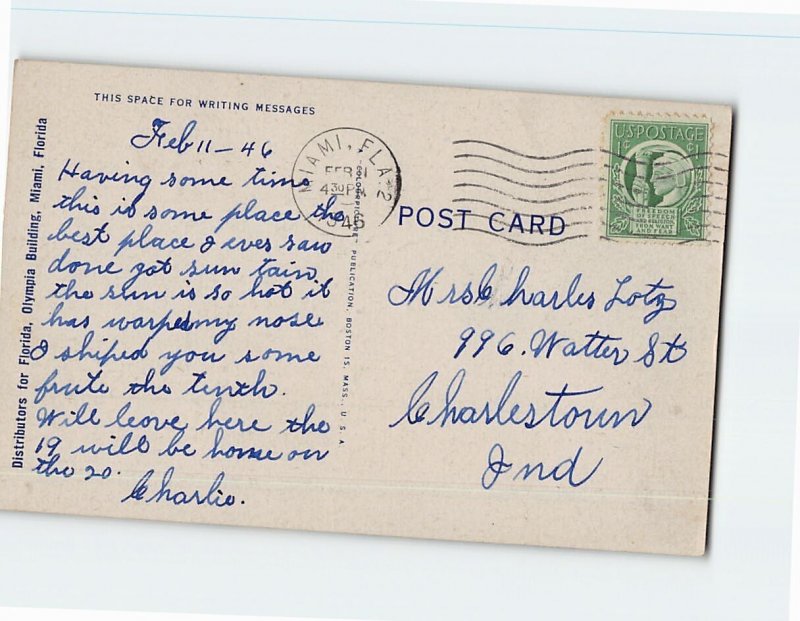 THIS SPACE FOR WRITING MESSAGES
Feb 11 - 46
Having some time
this is some place the
best place I ever saw
done got sun tain
the sun is so hot it
has warped my nose
I shiped you some
frute the tenth.
Will leove here the
19 will be home on
the 20.
Charlie.
Distributors for Florida, Olympia Building, Miami, Florida
"COLORPICTURE" PUBLICATION, BOSTON 15, MASS., U.S.A.
MIAMI, FLA. 2
FEB 11
4 30 PM
1946
U.S. POSTAGE
1¢ 1¢
FREEDOM
OF SPEECH
AND RELIGION,
FROM WANT
AND FEAR
POST CARD
Mrs Charles Lotz
996. Watter St
Charlestown
Ind